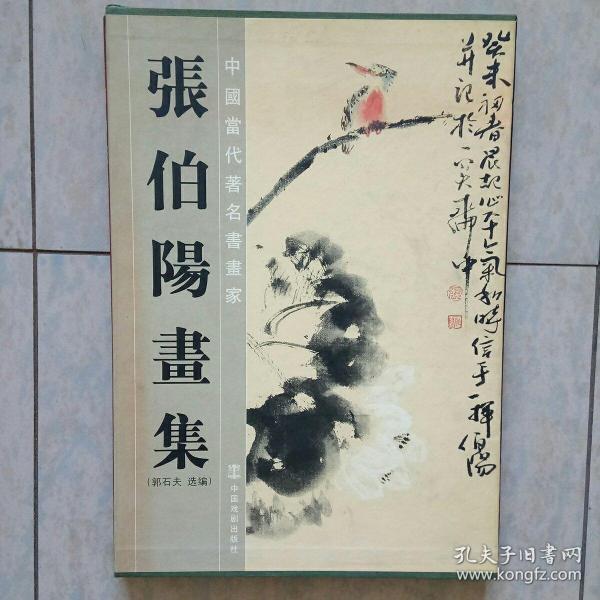 張伯陽畫集
(郭石夫 选编)
中國當代著名書畫家
中国戏剧出版社
癸未初春晨起心平气和時信手一揮伯陽
并記於
中
孔夫子旧书网
www.kongfz.com